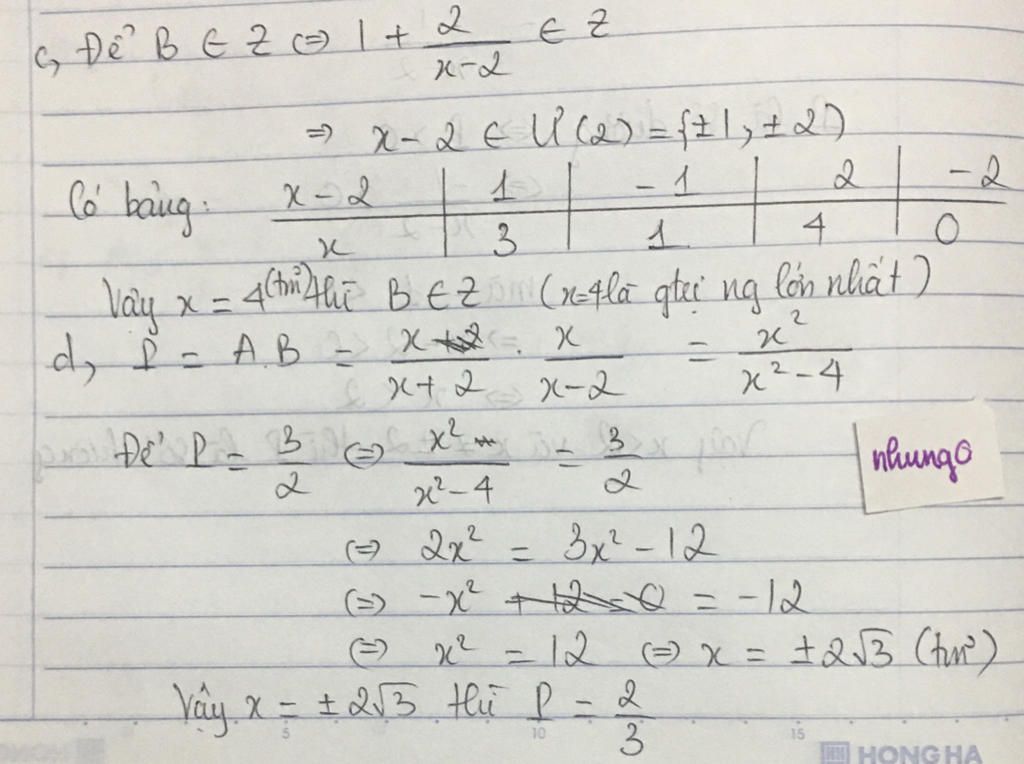 c, Để B ∈ Z ⇔ 1 + 2/(x-2) ∈ Z
⇒ x - 2 ∈ Ư(2) = {±1, ±2}
Có bảng: x - 2 | 1 | -1 | 2 | -2
x | 3 | 1 | 4 | 0
Vậy x = 4 (tm) thì B ∈ Z (x=4 là gtrị ng lớn nhất)
d, P = A.B = x/(x+2) . x/(x-2) = x²/(x²-4)
Để P = 3/2 ⇔ x²/(x²-4) = 3/2
nhungo
⇔ 2x² = 3x² - 12
⇔ -x² = -12
⇔ x² = 12 ⇔ x = ±2√3 (tm)
Vậy x = ±2√3 thì P = 2/3
5 10 15
HONG HA